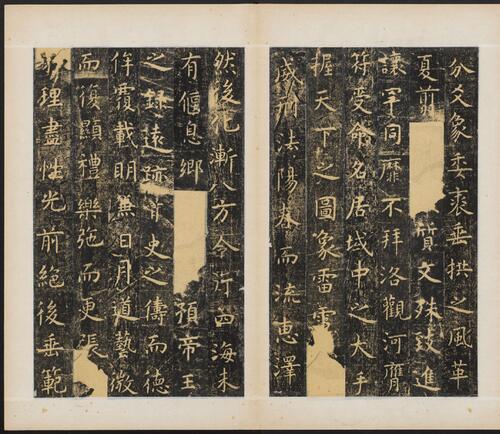 分爻象委裘垂拱之風革
夏翦質文殊致進
讓罕同靡不拜洛觀河膺
符受命名居域中之大手
握天下之圖象雷電
威刑法陽春而流惠澤
然後化漸八方令行四海未
有偃息鄉預帝王
之錄遠跡胥史之儔而德
侔覆載明兼日月道藝微
而復顯禮樂弛而更張
理盡性光前絕後垂範